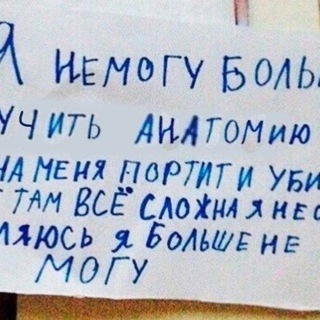 Я НЕМОГУ БОЛЬ
УЧИТЬ АНАТОМИЮ
НА МЕНЯ ПОРТИТ И УБИ
ТАМ ВСЁ СЛОЖНА Я НЕС
ЛЯЮСЬ Я БОЛЬШЕ НЕ
МОГУ